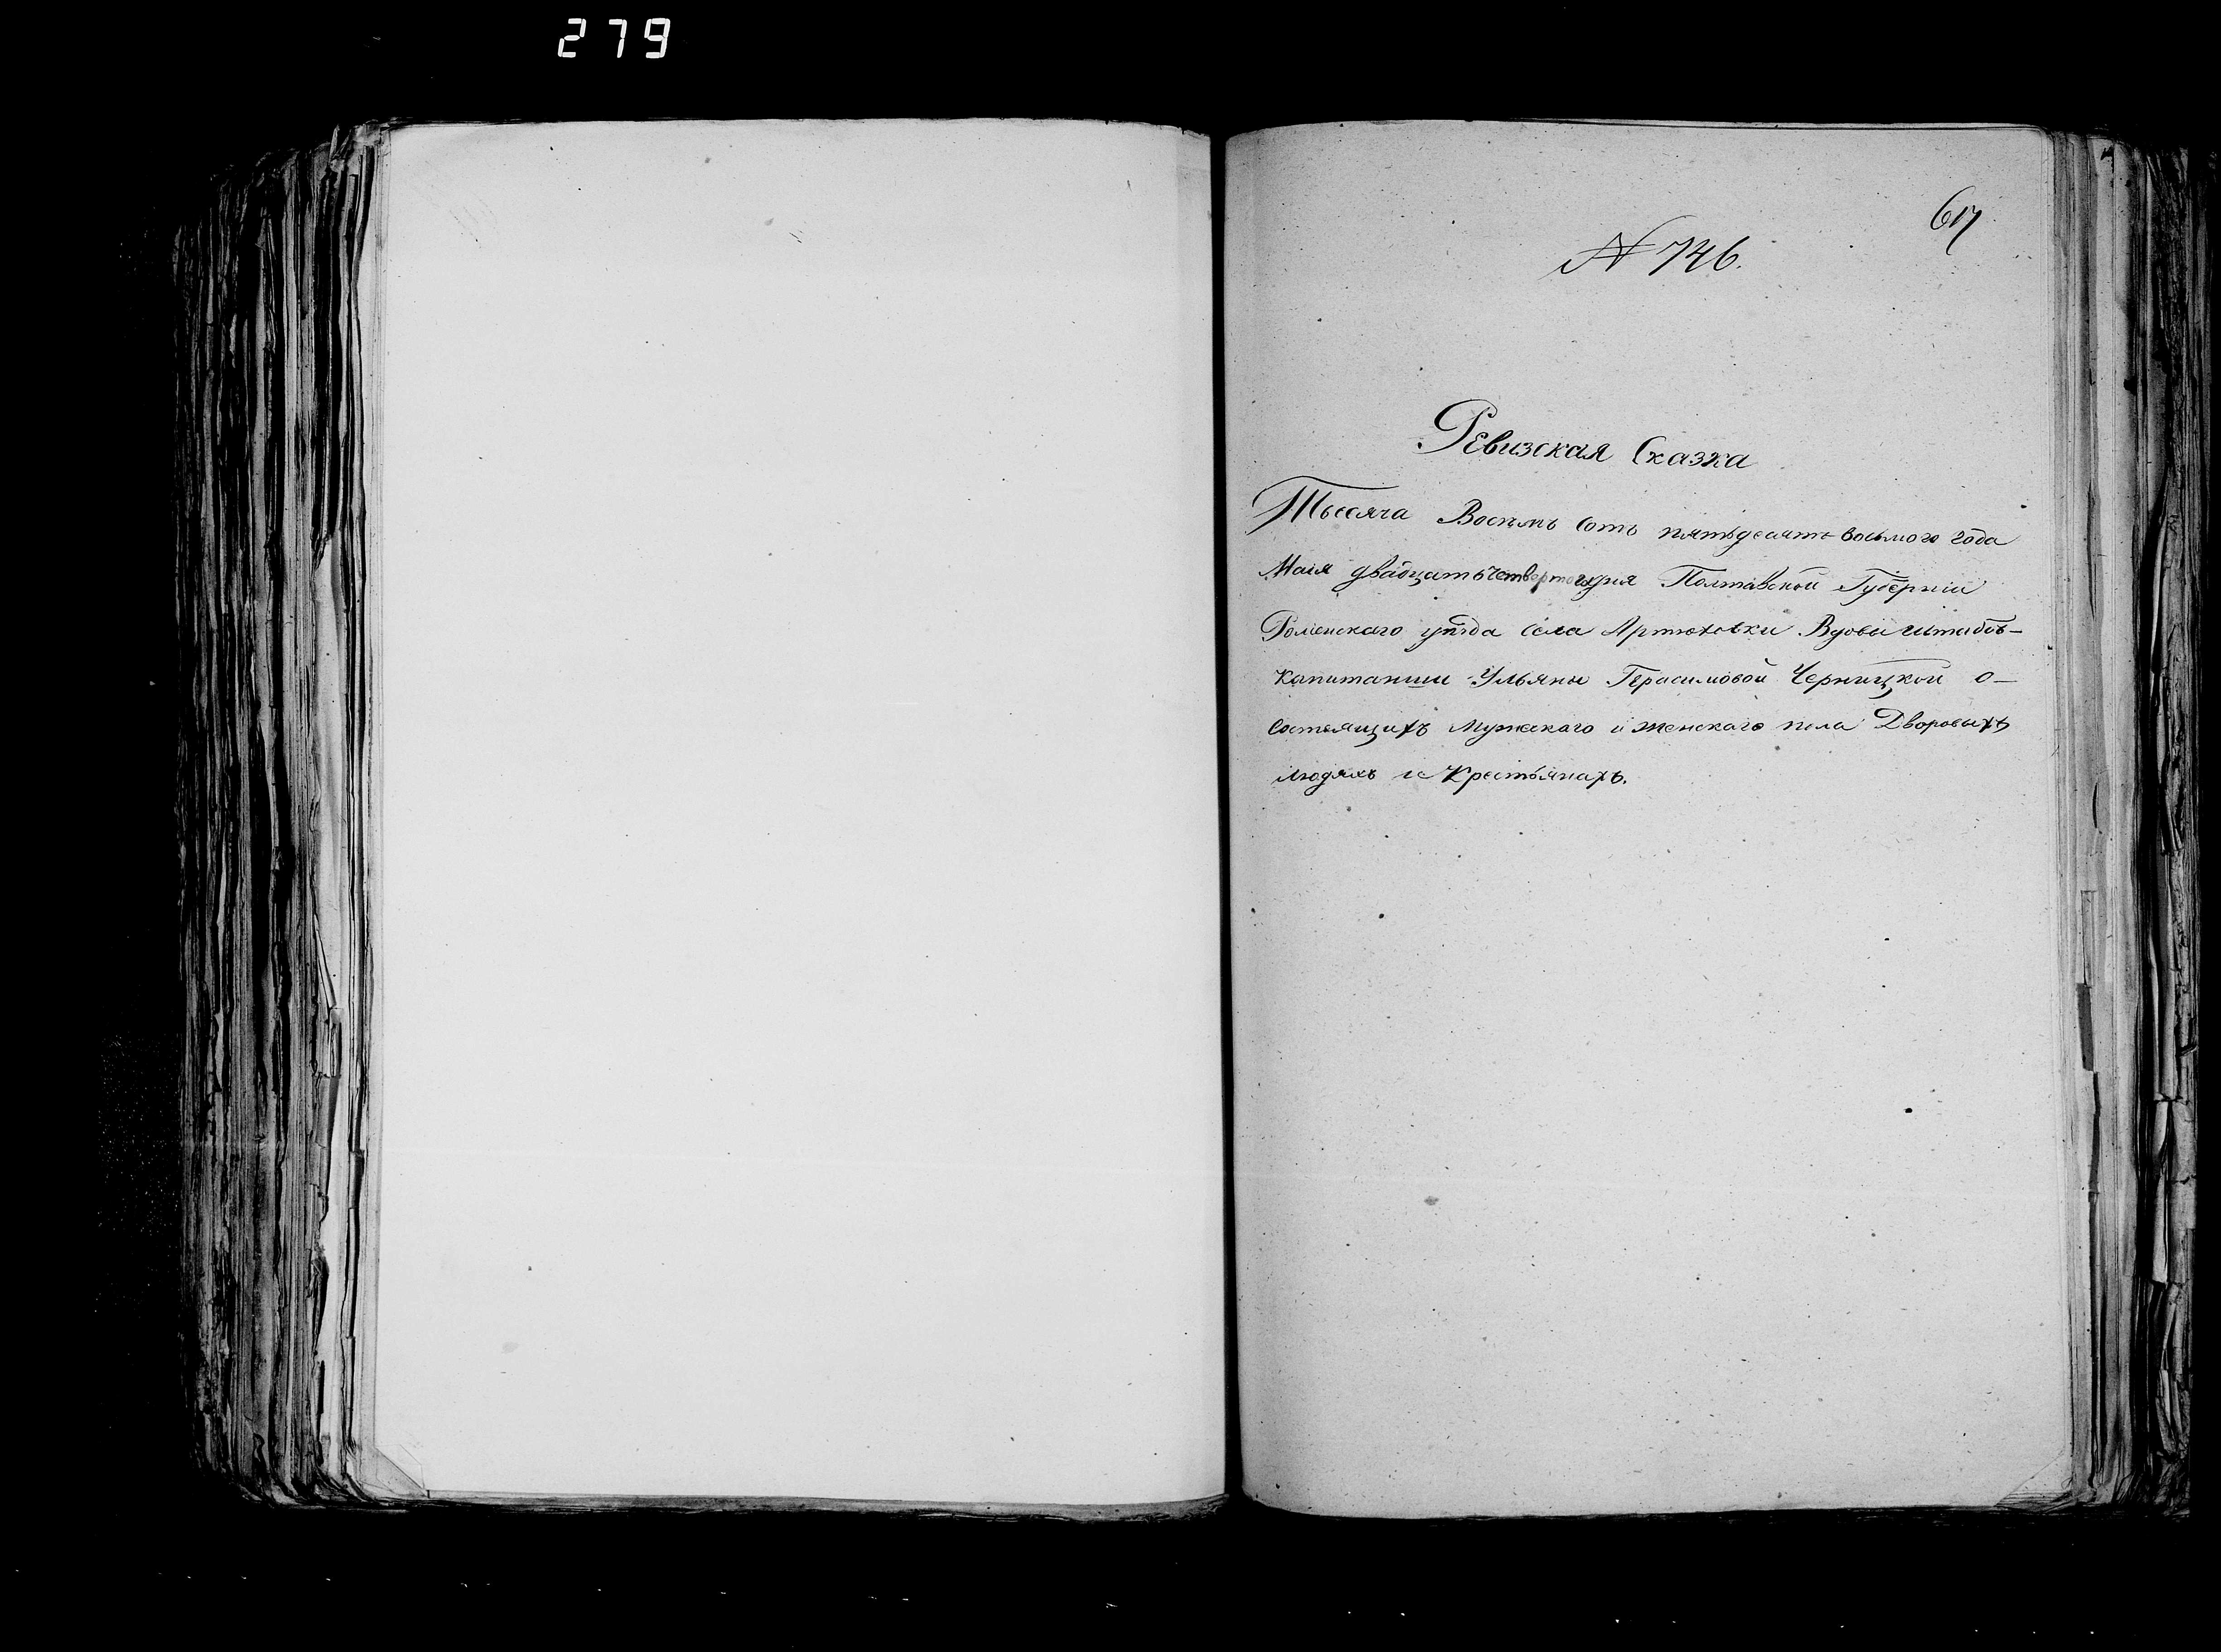 279
617
№ 746.
Ревизская Сказка
Тысяча Восемь сотъ пятьдесятъ восьмого года
Маія двадцать четвертого дня Полтавской Губерніи
Роменскаго уѣзда села Артюховки Вдовы Штабсъ-
Капитанши Ульяны Герасимовой Черницкой о-
состоящихъ мужескаго и женскаго пола Дворовыхъ
людяхъ и Крестьянахъ.